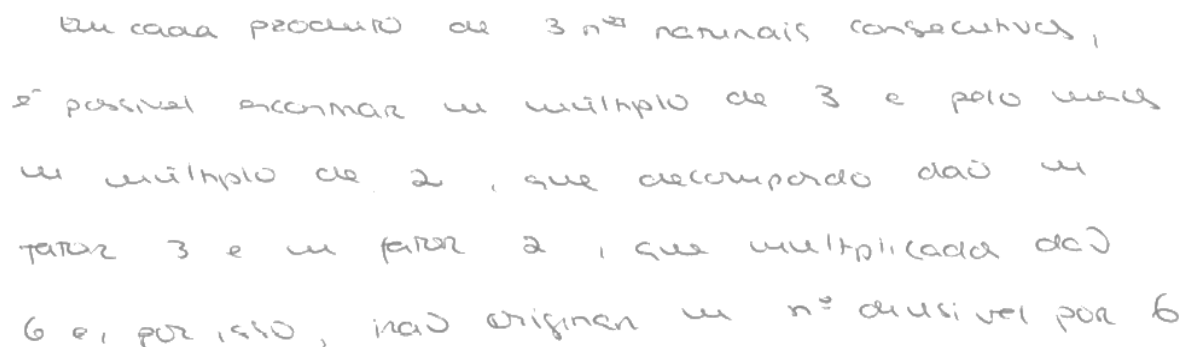 Em cada produto de 3 nºs naturais consecutivos,
é possível encontrar um múltiplo de 3 e pelo menos
um múltiplo de 2, que decompondo dão um
fator 3 e um fator 2, que multiplicados dão
6 e, por isso, irão originar um nº divisível por 6